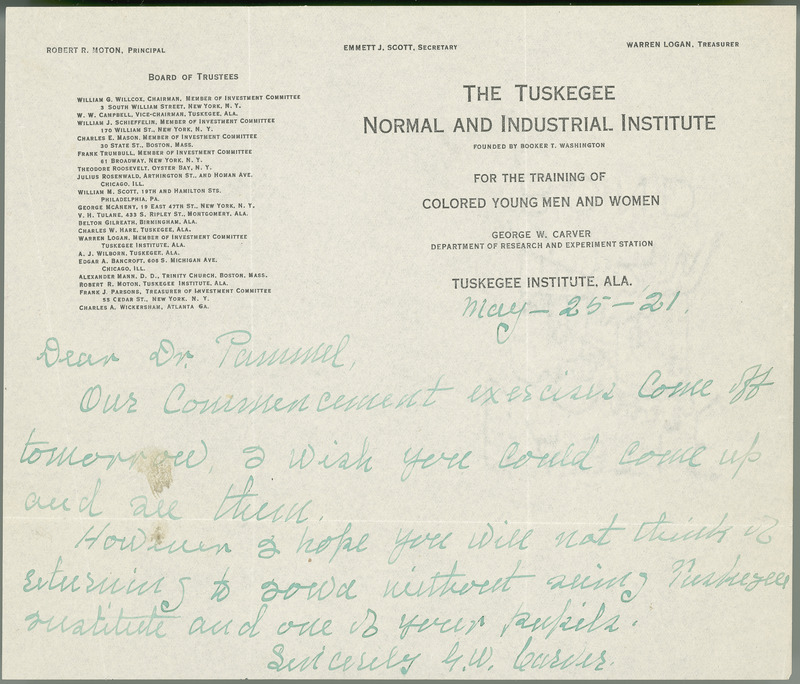 ROBERT R. MOTON, PRINCIPAL
EMMETT J. SCOTT, SECRETARY
WARREN LOGAN, TREASURER
BOARD OF TRUSTEES
WILLIAM G. WILLCOX, CHAIRMAN, MEMBER OF INVESTMENT COMMITTEE
3 SOUTH WILLIAM STREET, NEW YORK, N. Y.
W. W. CAMPBELL, VICE-CHAIRMAN, TUSKEGEE, ALA.
WILLIAM J. SCHIEFFELIN, MEMBER OF INVESTMENT COMMITTEE
170 WILLIAM ST., NEW YORK, N. Y.
CHARLES E. MASON, MEMBER OF INVESTMENT COMMITTEE
30 STATE ST., BOSTON, MASS.
FRANK TRUMBULL, MEMBER OF INVESTMENT COMMITTEE
61 BROADWAY, NEW YORK, N. Y.
THEODORE ROOSEVELT, OYSTER BAY, N. Y.
JULIUS ROSENWALD, ARTHINGTON ST., AND HOMAN AVE.
CHICAGO, ILL.
WILLIAM M. SCOTT, 19TH AND HAMILTON STS.
PHILADELPHIA, PA.
GEORGE MCANENY, 19 EAST 47TH ST., NEW YORK, N. Y.
V. H. TULANE, 433 S. RIPLEY ST., MONTGOMERY, ALA.
BELTON GILREATH, BIRMINGHAM, ALA.
CHARLES W. HARE, TUSKEGEE, ALA.
WARREN LOGAN, MEMBER OF INVESTMENT COMMITTEE
TUSKEGEE INSTITUTE, ALA.
A. J. WILBORN, TUSKEGEE, ALA.
EDGAR A. BANCROFT, 606 S. MICHIGAN AVE.
CHICAGO, ILL.
ALEXANDER MANN, D. D., TRINITY CHURCH, BOSTON, MASS.
ROBERT R. MOTON, TUSKEGEE INSTITUTE, ALA.
FRANK J. PARSONS, TREASURER OF INVESTMENT COMMITTEE
55 CEDAR ST., NEW YORK, N. Y.
CHARLES A. WICKERSHAM, ATLANTA GA.
THE TUSKEGEE
NORMAL AND INDUSTRIAL INSTITUTE
FOUNDED BY BOOKER T. WASHINGTON
FOR THE TRAINING OF
COLORED YOUNG MEN AND WOMEN
GEORGE W. CARVER
DEPARTMENT OF RESEARCH AND EXPERIMENT STATION
TUSKEGEE INSTITUTE, ALA.
May - 25 - 21.
Dear Dr. Pammel,
Our Commencement exercises come off
tomorrow, I wish you could come up
and see them.
However I hope you will not think of
returning to Iowa without seeing Tuskegee
Institute and one of your pupils.
Sincerely G. W. Carver.